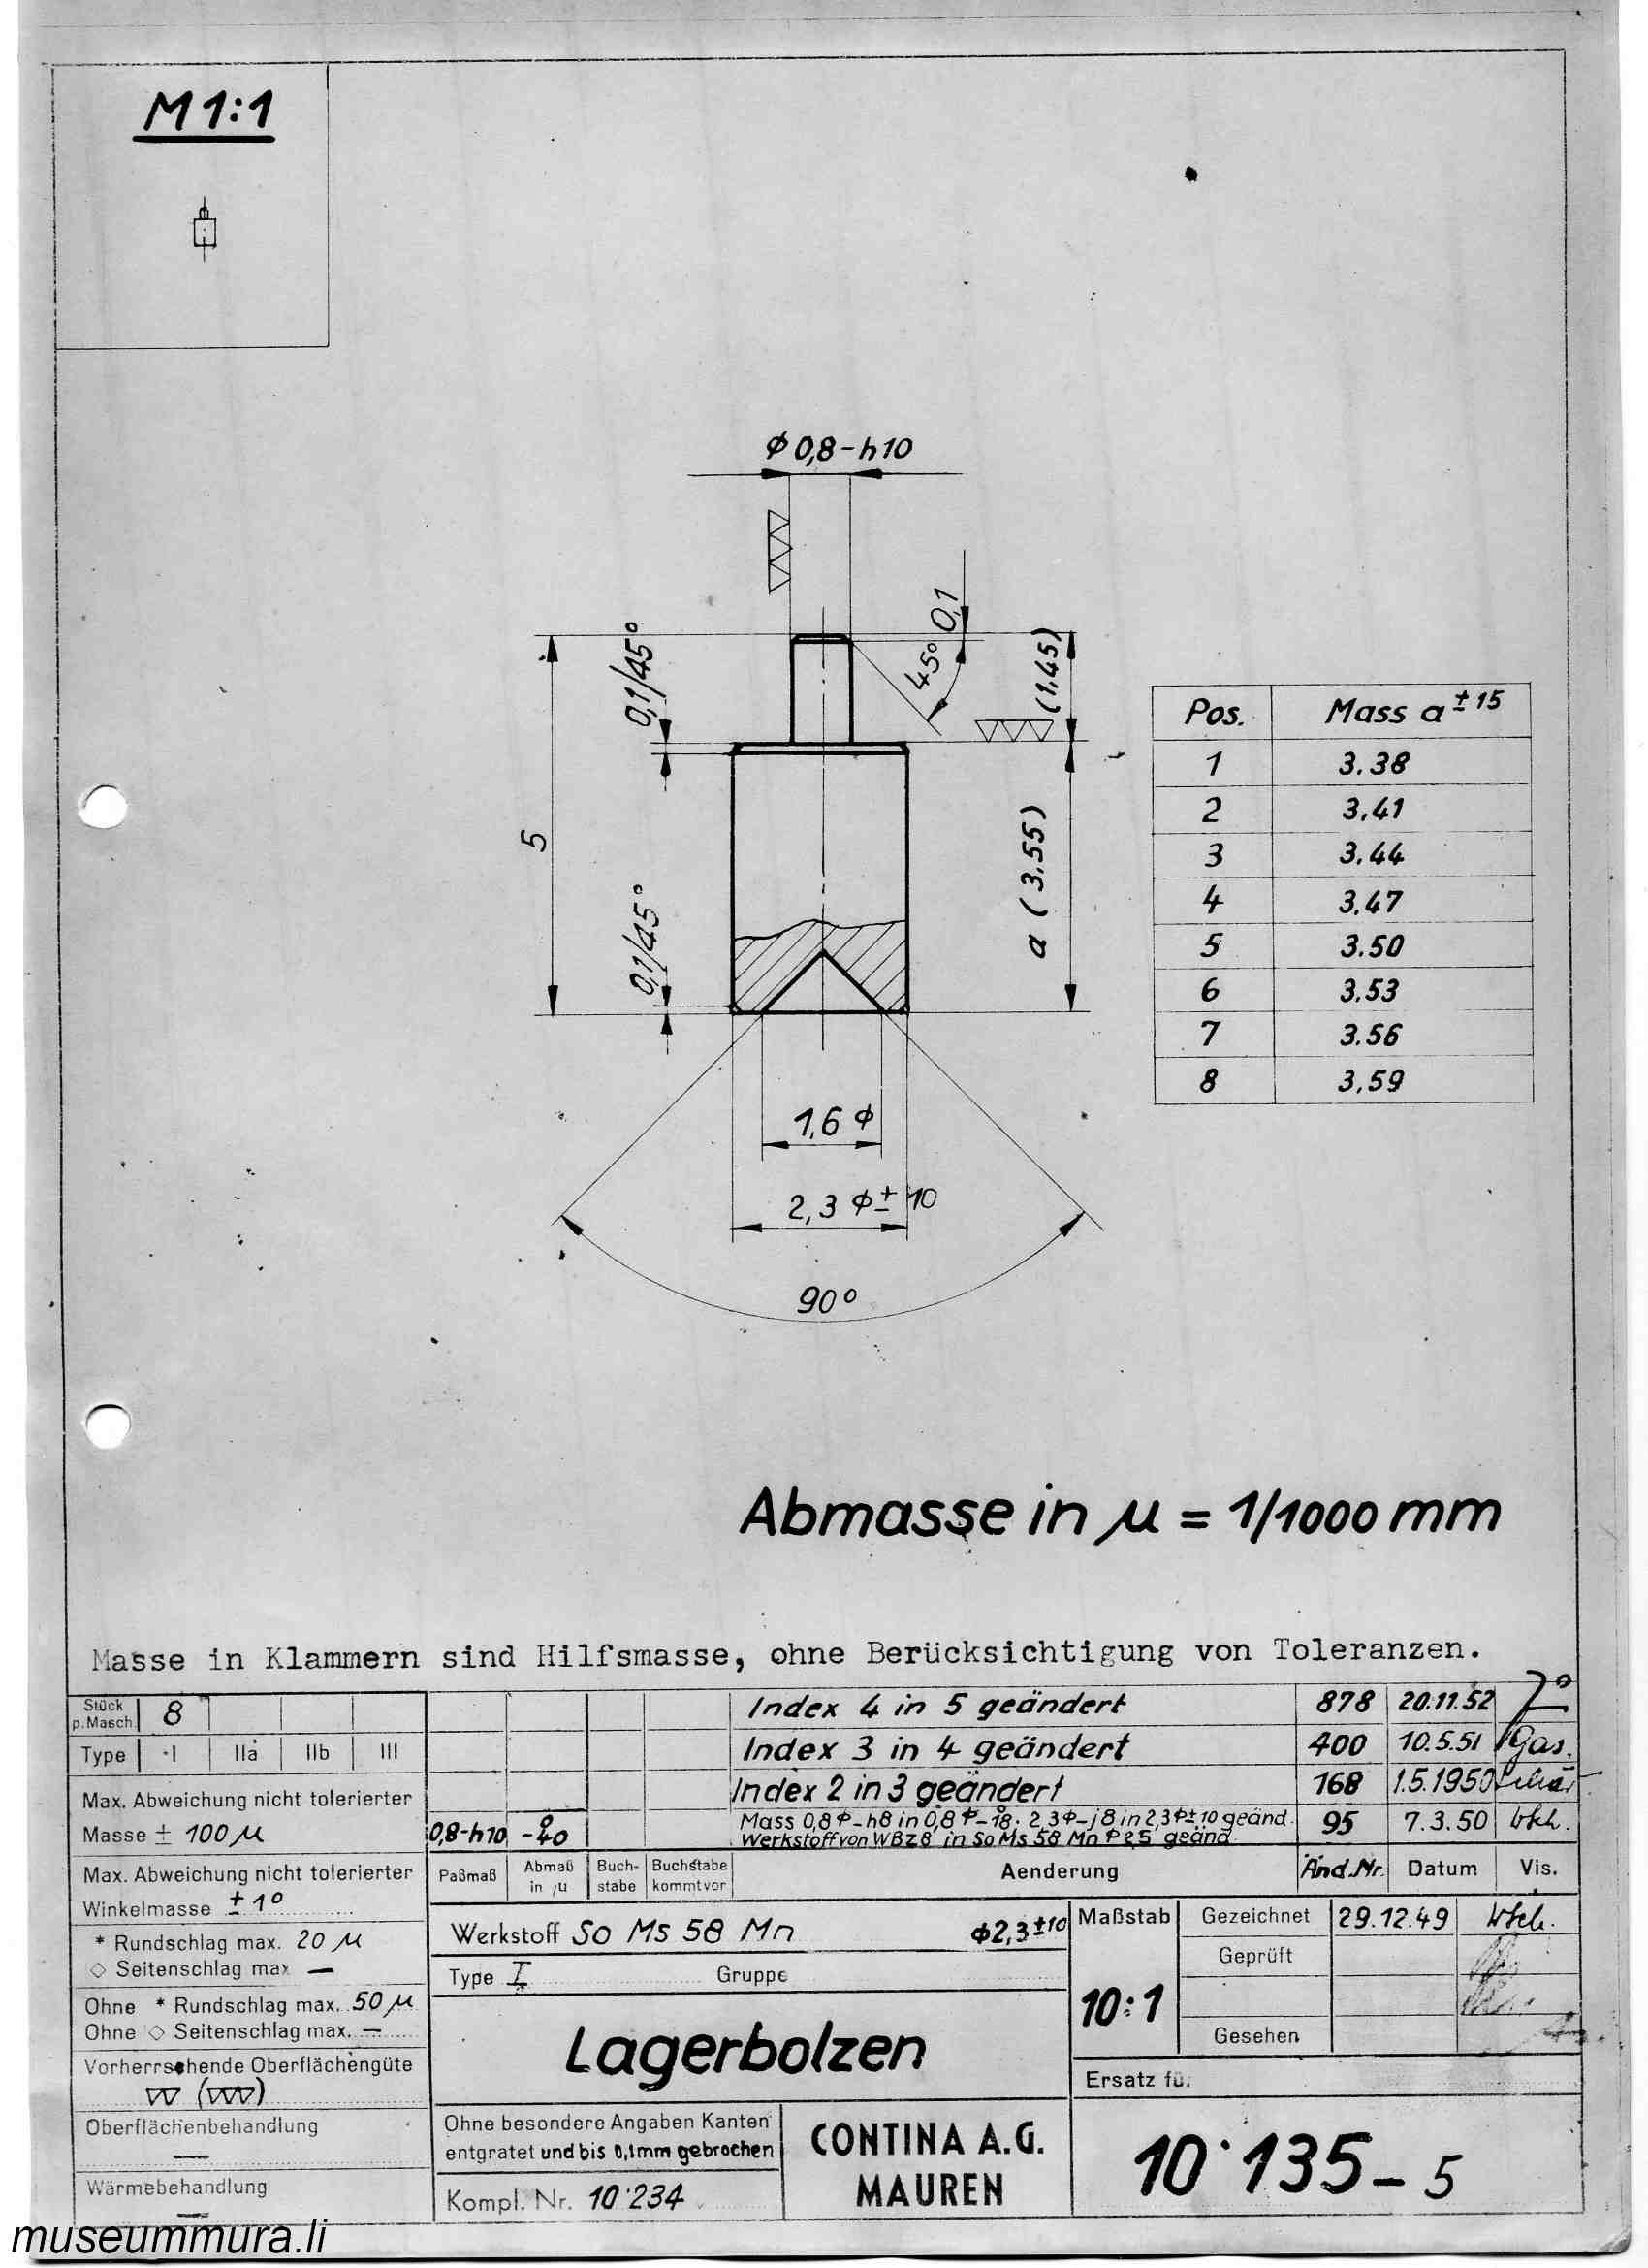 M 1:1
ϕ 0,8-h10
0,1/45°
45°
0,1
(1,45)
5
a (3,55)
0,1/45°
1,6 ϕ
2,3 ϕ ± 10
90°
Pos. Mass a ± 15
1 3.38
2 3,41
3 3,44
4 3,47
5 3.50
6 3,53
7 3.56
8 3,59
Abmasse in µ = 1/1000 mm
Masse in Klammern sind Hilfsmasse, ohne Berücksichtigung von Toleranzen.
Stück p. Masch. 8
Type I IIa IIb III
Max. Abweichung nicht tolerierter
Masse ± 100 µ
Max. Abweichung nicht tolerierter
Winkelmasse ± 1°
* Rundschlag max. 20 µ
◇ Seitenschlag max —
Ohne * Rundschlag max. 50 µ
Ohne ◇ Seitenschlag max. —
Vorherrschende Oberflächengüte
▽▽ (▽▽▽)
Oberflächenbehandlung
—
Wärmebehandlung
—
Index 4 in 5 geändert 878 20.11.52
Index 3 in 4 geändert 400 10.5.51 Gas.
Index 2 in 3 geändert 168 1.5.1950
Mass 0,8 ϕ-h8 in 0,8 ϕ 2,3ϕ-j8 in 2,3ϕ±10 geänd. 95 7.3.50
Werkstoff von WBZ8 in So Ms 58 Mn ϕ 2,5 geänd.
0,8-h10 0 -40
Paßmaß Abmaß in µ Buchstabe Buchstabe kommt vor Aenderung Änd.Nr. Datum Vis.
Werkstoff So Ms 58 Mn ϕ2,3±10
Type I Gruppe
Lagerbolzen
Maßstab
10:1
Gezeichnet 29.12.49
Geprüft
Gesehen
Ersatz für
Ohne besondere Angaben Kanten
entgratet und bis 0,1mm gebrochen
Kompl. Nr. 10'234
CONTINA A.G.
MAUREN
10'135-5
museummura.li